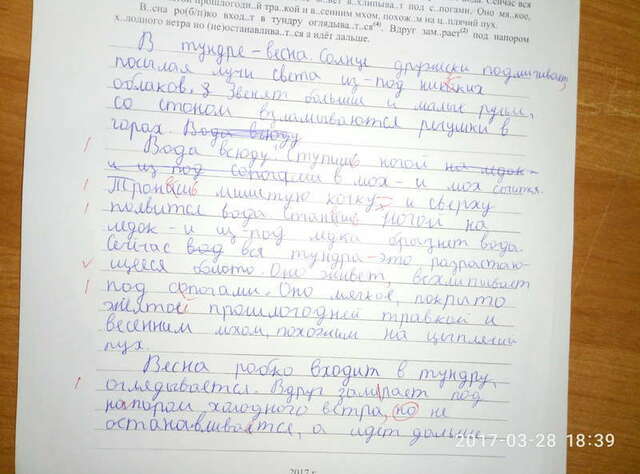 прошлогодн..й тра..кой и в..сенним мхом, похож..м на ц..плячий пух.
В..сна ро(б/п)ко вход..т в тундру оглядыва..т..ся(4). Вдруг зам..рает(2) под напором
х..лодного ветра но (не)останавлива..т..ся а идёт дальше.
В тундре - весна. Солнце дружески подмигивает,
посылая лучи света из-под низких
облаков. Звенят большие и малые ручьи,
со стоном взламываются речушки в
горах. Вода всюду
Вода всюду. Ступишь ногой на ледок -
и из под сапогами в мох - и мох
Тронешь мшистую кочку - и сверху
появится вода станешь ногой на
ледок - и из-под ледка брызнет вода.
Сейчас вод вся тундра - это разрастаю-
щееся болото. Оно живет, всхлипывает
под сапогами. Оно мягкое, покрыто
желтой прошлогодней травкой и
весенним мхом, похожим на цыплячий
пух.
Весна робко входит в тундру,
оглядывается. Вдруг замирает под
напором холодного ветра, но не
останавливается, а идет дальше.
2017-03-28 18:39
2017 г.